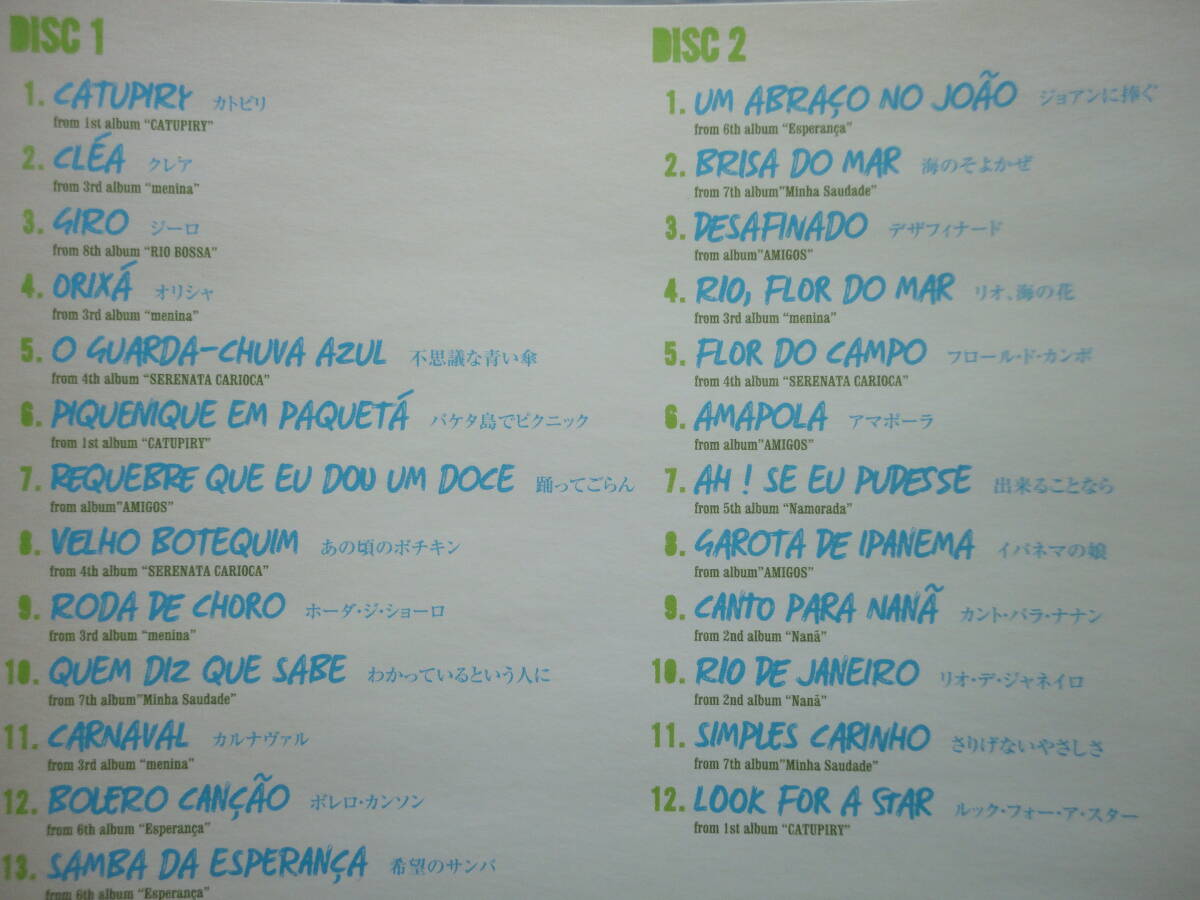 DISC 1
1. CATUPIRY カトピリ
from 1st album “CATUPIRY”
2. CLÉA クレア
from 3rd album “menina”
3. GIRO ジーロ
from 8th album “RIO BOSSA”
4. ORIXÁ オリシャ
from 3rd album “menina”
5. O GUARDA-CHUVA AZUL 不思議な青い傘
from 4th album “SERENATA CARIOCA”
6. PIQUENIQUE EM PAQUETÁ パケタ島でピクニック
from 1st album “CATUPIRY”
7. REQUEBRE QUE EU DOU UM DOCE 踊ってごらん
from album”AMIGOS”
8. VELHO BOTEQUIM あの頃のボチキン
from 4th album “SERENATA CARIOCA”
9. RODA DE CHORO ホーダ・ジ・ショーロ
from 3rd album “menina”
10. QUEM DIZ QUE SABE わかっているという人に
from 7th album”Minha Saudade”
11. CARNAVAL カルナヴァル
from 3rd album “menina”
12. BOLERO CANÇÃO ボレロ・カンソン
from 6th album “Esperança”
13. SAMBA DA ESPERANÇA 希望のサンバ
from 6th album “Esperança”
DISC 2
1. UM ABRAÇO NO JOÃO ジョアンに捧ぐ
from 6th album “Esperança”
2. BRISA DO MAR 海のそよかぜ
from 7th album”Minha Saudade”
3. DESAFINADO デザフィナード
from album”AMIGOS”
4. RIO, FLOR DO MAR リオ、海の花
from 3rd album “menina”
5. FLOR DO CAMPO フロール・ド・カンポ
from 4th album “SERENATA CARIOCA”
6. AMAPOLA アマポーラ
from album”AMIGOS”
7. AH ! SE EU PUDESSE 出来ることなら
from 5th album “Namorada”
8. GAROTA DE IPANEMA イパネマの娘
from album”AMIGOS”
9. CANTO PARA NANÃ カント・パラ・ナナン
from 2nd album “Nanã”
10. RIO DE JANEIRO リオ・デ・ジャネイロ
from 2nd album “Nanã”
11. SIMPLES CARINHO さりげないやさしさ
from 7th album”Minha Saudade”
12. LOOK FOR A STAR ルック・フォー・ア・スター
from 1st album “CATUPIRY”